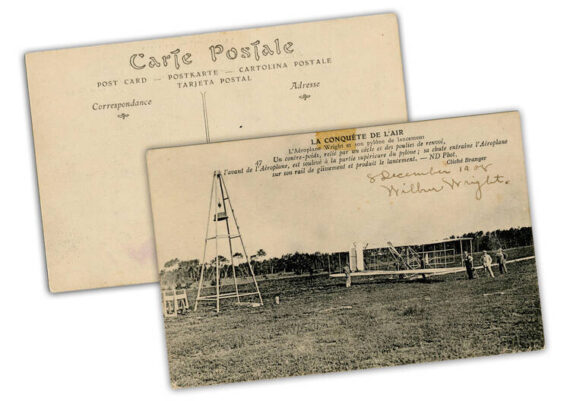 Carte Postale
POST CARD — POSTKARTE — CARTOLINA POSTALE
TARJETA POSTAL
Correspondance
Adresse
LA CONQUÊTE DE L'AIR
L'Aéroplane Wright et son pylône de lancement
47 Un contre-poids, relié par un câble et des poulies de renvoi,
l'avant de l'Aéroplane, est soulevé à la partie supérieure du pylône ; sa chute entraîne l'Aéroplane
sur son rail de glissement et produit le lancement. — ND Phot.
Cliché Branger
8 December 1908
Wilbur Wright.